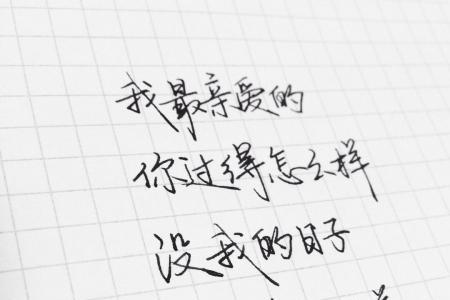 我最亲爱的
你过得怎么样
没我的日子